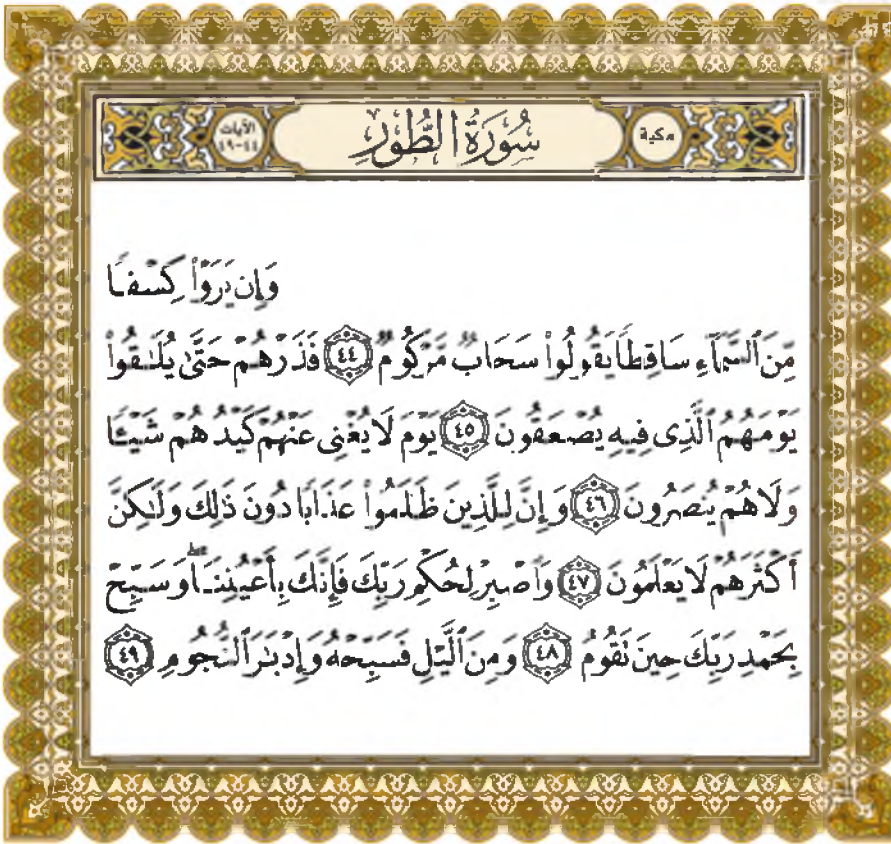 مكية
سُورَةُ الطُّورِ
الآيات
٤٤-٤٩
وَإِن يَرَوْا۟ كِسْفًا
مِّنَ ٱلسَّمَآءِ سَاقِطًا يَقُولُوا۟ سَحَابٌ مَّرْكُومٌ ٤٤ فَذَرْهُمْ حَتَّىٰ يُلَـٰقُوا۟
يَوْمَهُمُ ٱلَّذِى فِيهِ يُصْعَقُونَ ٤٥ يَوْمَ لَا يُغْنِى عَنْهُمْ كَيْدُهُمْ شَيْـًٔا
وَلَا هُمْ يُنصَرُونَ ٤٦ وَإِنَّ لِلَّذِينَ ظَلَمُوا۟ عَذَابًا دُونَ ذَٰلِكَ وَلَـٰكِنَّ
أَكْثَرَهُمْ لَا يَعْلَمُونَ ٤٧ وَٱصْبِرْ لِحُكْمِ رَبِّكَ فَإِنَّكَ بِأَعْيُنِنَا ۖ وَسَبِّحْ
بِحَمْدِ رَبِّكَ حِينَ تَقُومُ ٤٨ وَمِنَ ٱلَّيْلِ فَسَبِّحْهُ وَإِدْبَـٰرَ ٱلنُّجُومِ ٤٩